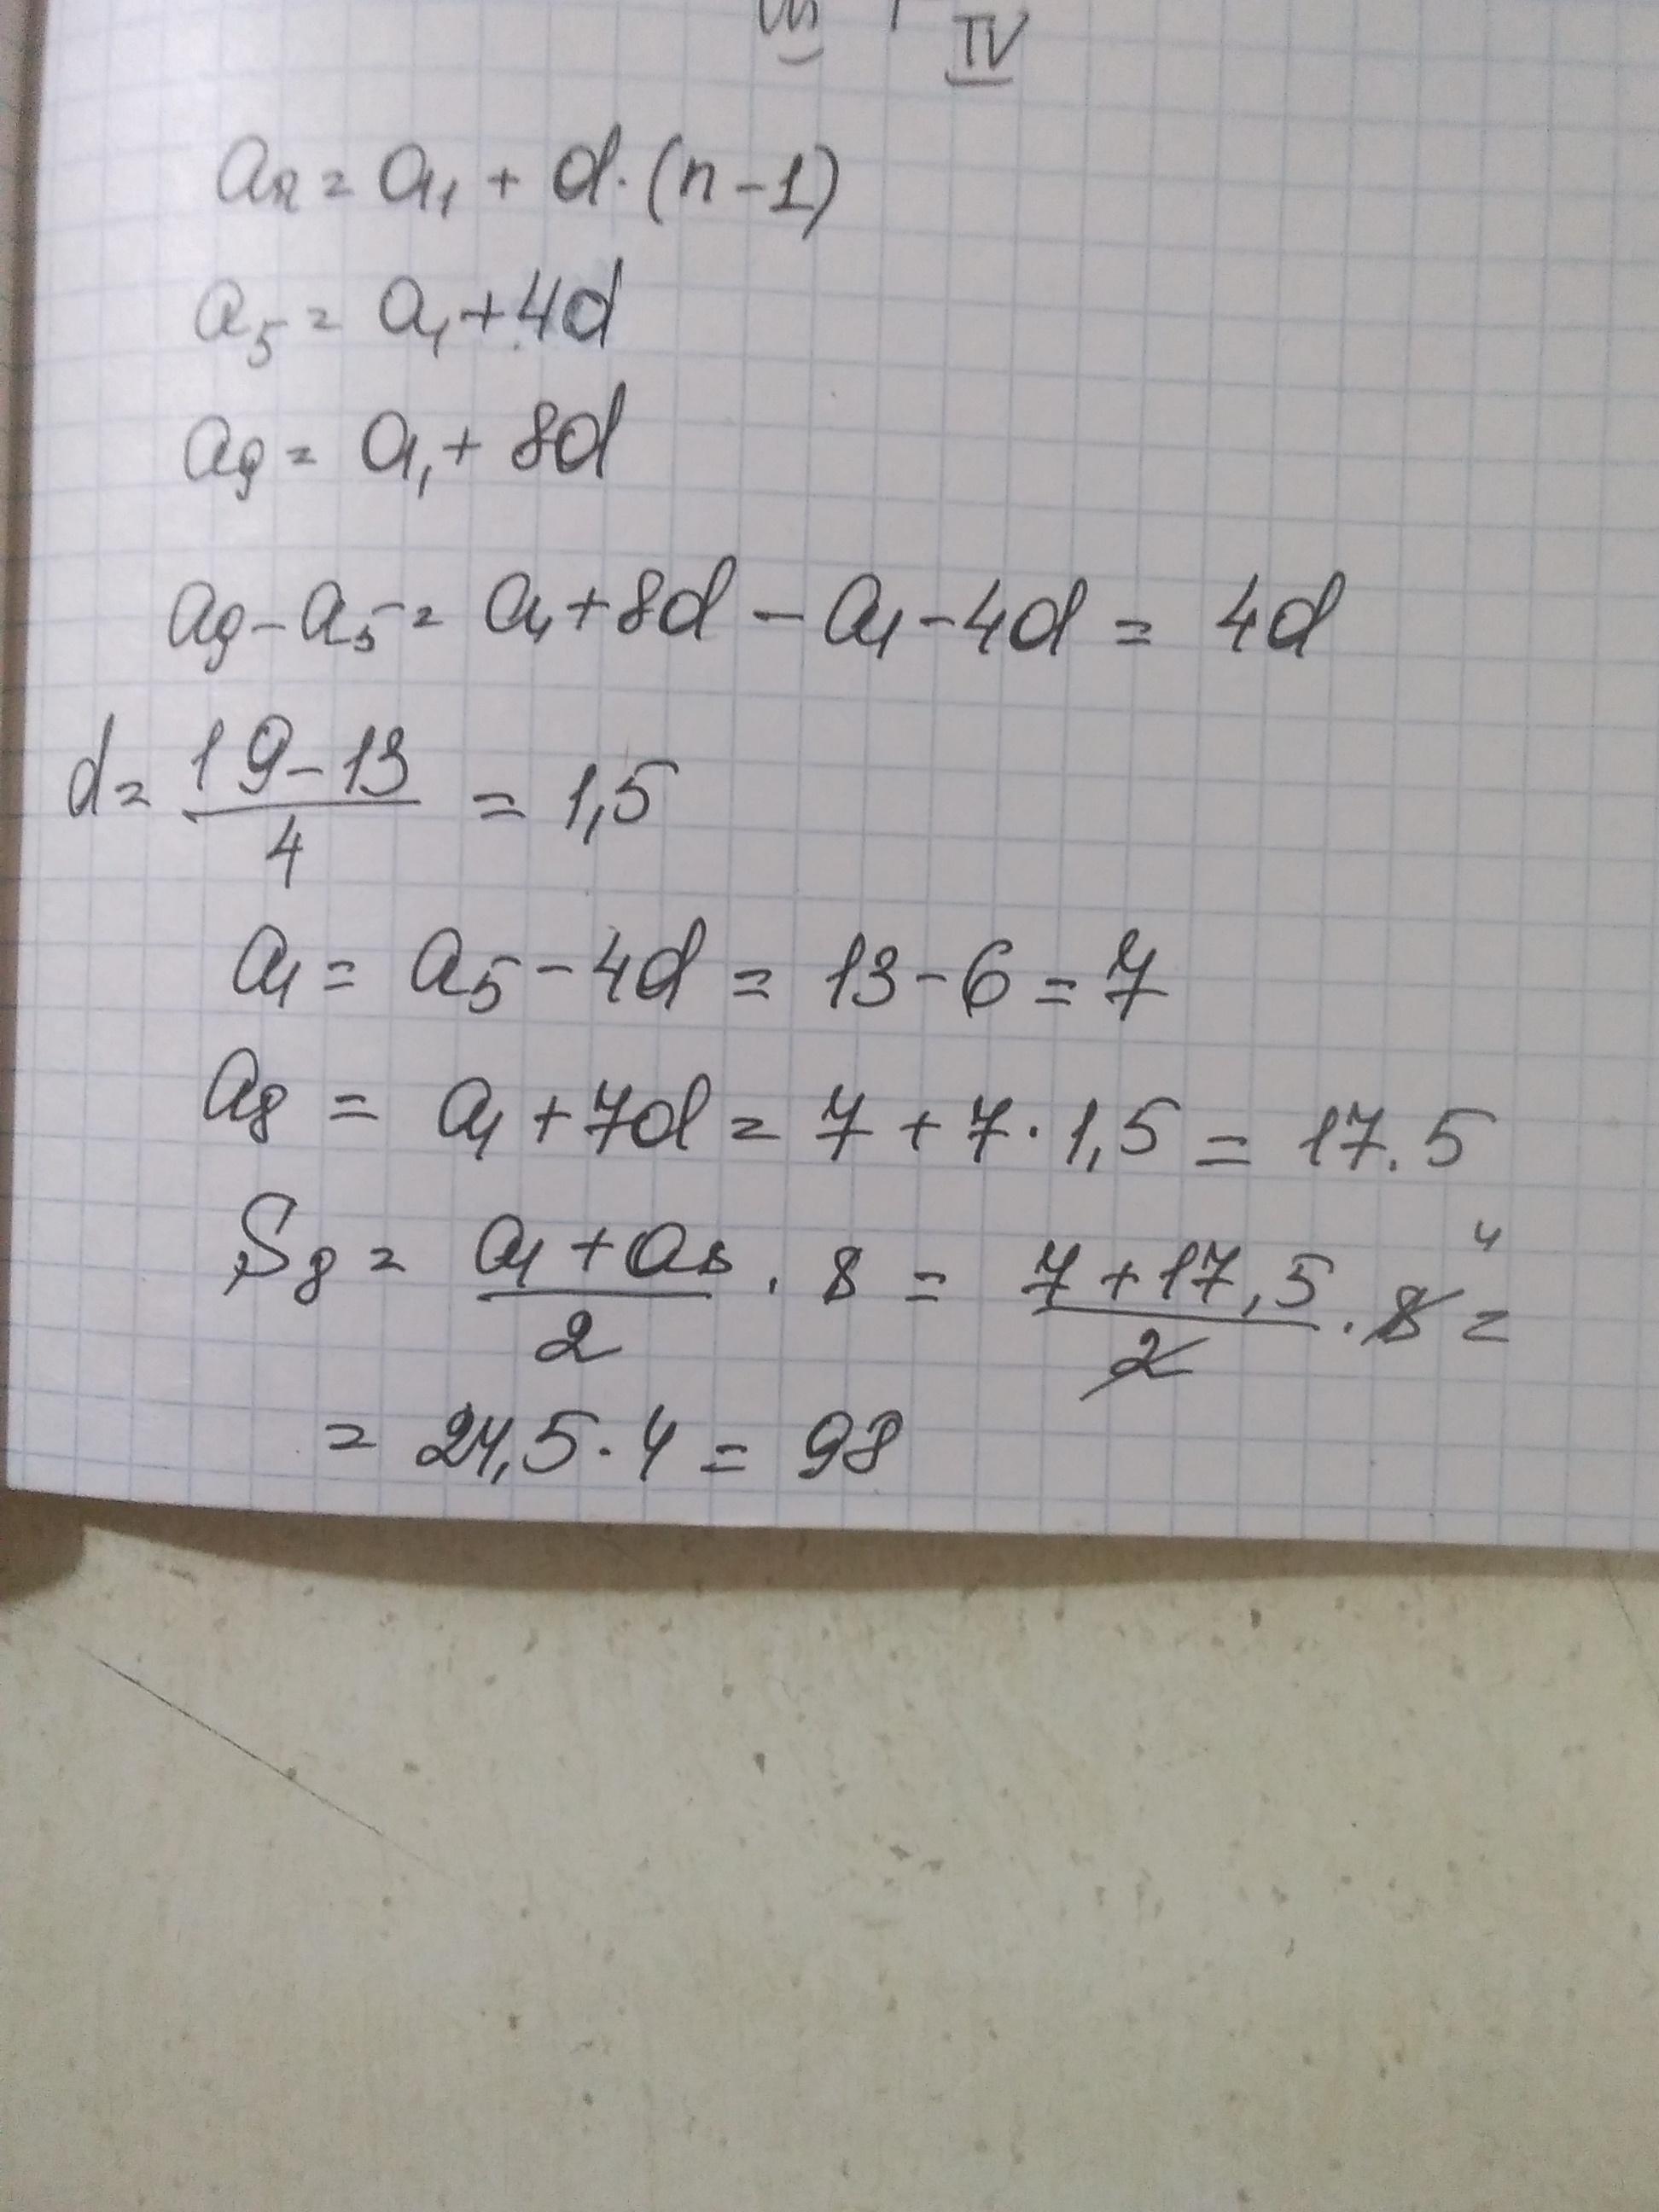 IV
aₙ = a₁ + d·(n-1)
a₅ = a₁ + 4d
a₉ = a₁ + 8d
a₉ - a₅ = a₁ + 8d - a₁ - 4d = 4d
d = (19-13)/4 = 1,5
a₁ = a₅ - 4d = 13 - 6 = 7
a₈ = a₁ + 7d = 7 + 7·1,5 = 17.5
S₈ = (a₁ + a₈)/2 · 8 = (7 + 17,5)/2 · 8 4 =
= 24,5·4 = 98